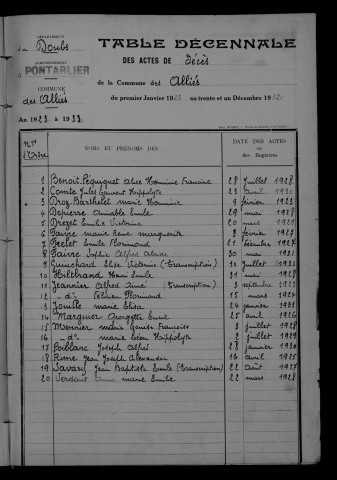 DÉPARTEMENT
du Doubs
ARRONDISSEMENT
PONTARLIER
COMMUNE
des Alliés
An 1923 à 1932
TABLE DÉCENNALE
DES ACTES DE Décès
de la Commune des Alliés
du premier Janvier 1923 au trente et un Décembre 1932
Nos d'Ordre
NOMS ET PRÉNOMS DES
DATE DES ACTES ou des Registres
1 Benoit Péquignet Alice Hominie Francine 28 Juillet 1928
2 Comte Jules Hippolyte 23 avril 1930
3 Droz Barthelet marie Hominie 9 février 1923
4 Depierre Aimable Emile 29 mai 1928
5 Drezet Emilie 20 mars 1929
6 Faivre marie René marguerite 2 février 1927
7 Frelet Emile Florimond 21 Décembre 1927
8 Faivre Alfred 30 mai 1931
9 Guinchard (transcription) 10 Juillet
10 Henri Emile 31 mai 1928
11 Jeannier Alfred Aimé (transcription) 3 septembre
12 - d° Florimond 15 mars 1926
13 Jouille marie Elisa 24 janvier 1931
14 Marguier Georgette 25 avril 1926
15 Monnier marie Françoise 2 juillet 1928
16 - d° marie Léon Hippolyte 2 juillet 1929
17 Poiblanc Joseph Alfred 28 janvier 1930
18 Rime Jean Joseph Alexandre 16 avril 1925
19 Savary Jean Baptiste Emile (transcription) 22 Août 1927
20 Verdant marie Emile 22 mars 1928